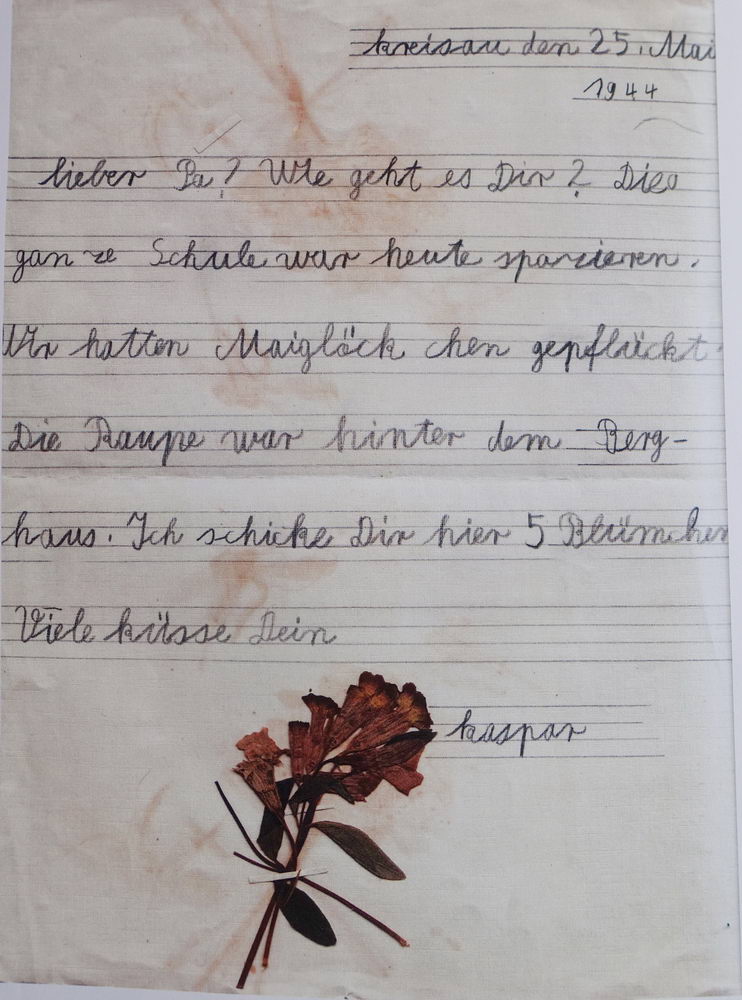 kreisau den 25. Mai
1944
lieber Pa? Wie geht es Dir? Die
gan ze Schule war heute spazieren.
Wir hatten Maiglöck chen gepflückt.
Die Raupe war hinter dem Berg-
haus. Ich schicke Dir hier 5 Blümchen
Viele küsse Dein
kaspar